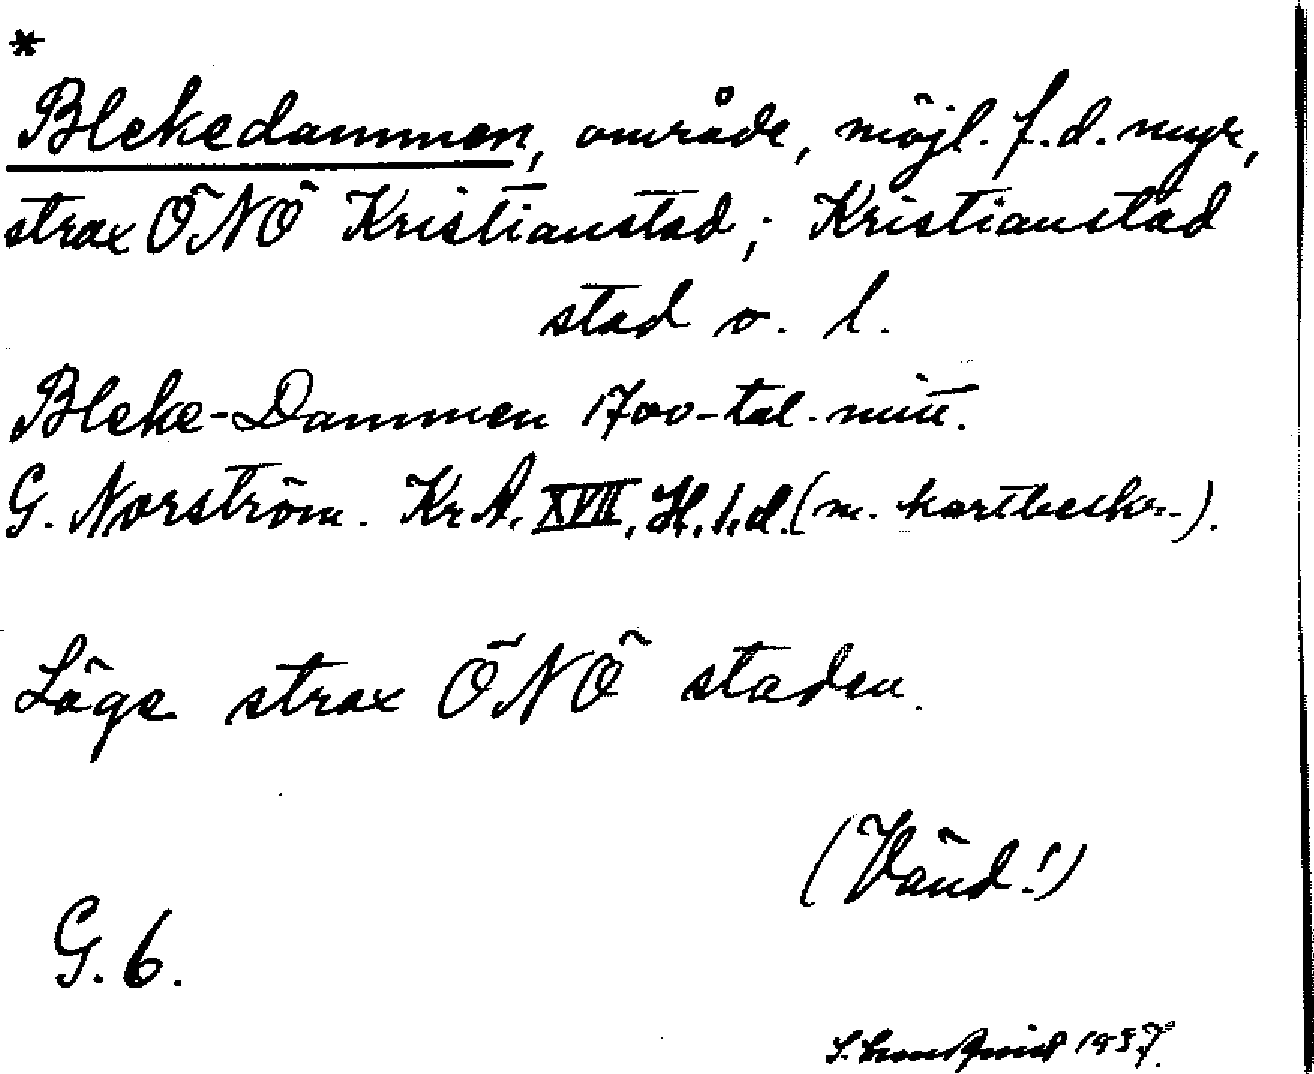 *
Blekedammen, område, möjl. f.d. myr,
strax ÖNÖ Kristianstad; Kristianstad
stad o. l.
Bleke-Dammen 1700-tal. mitt.
G. Norström. Kr A. XVII. H. 1. d. (m. kartbeskr.).
Låge strax ÖNÖ staden.
(Vänd!)
G. 6.
1937.